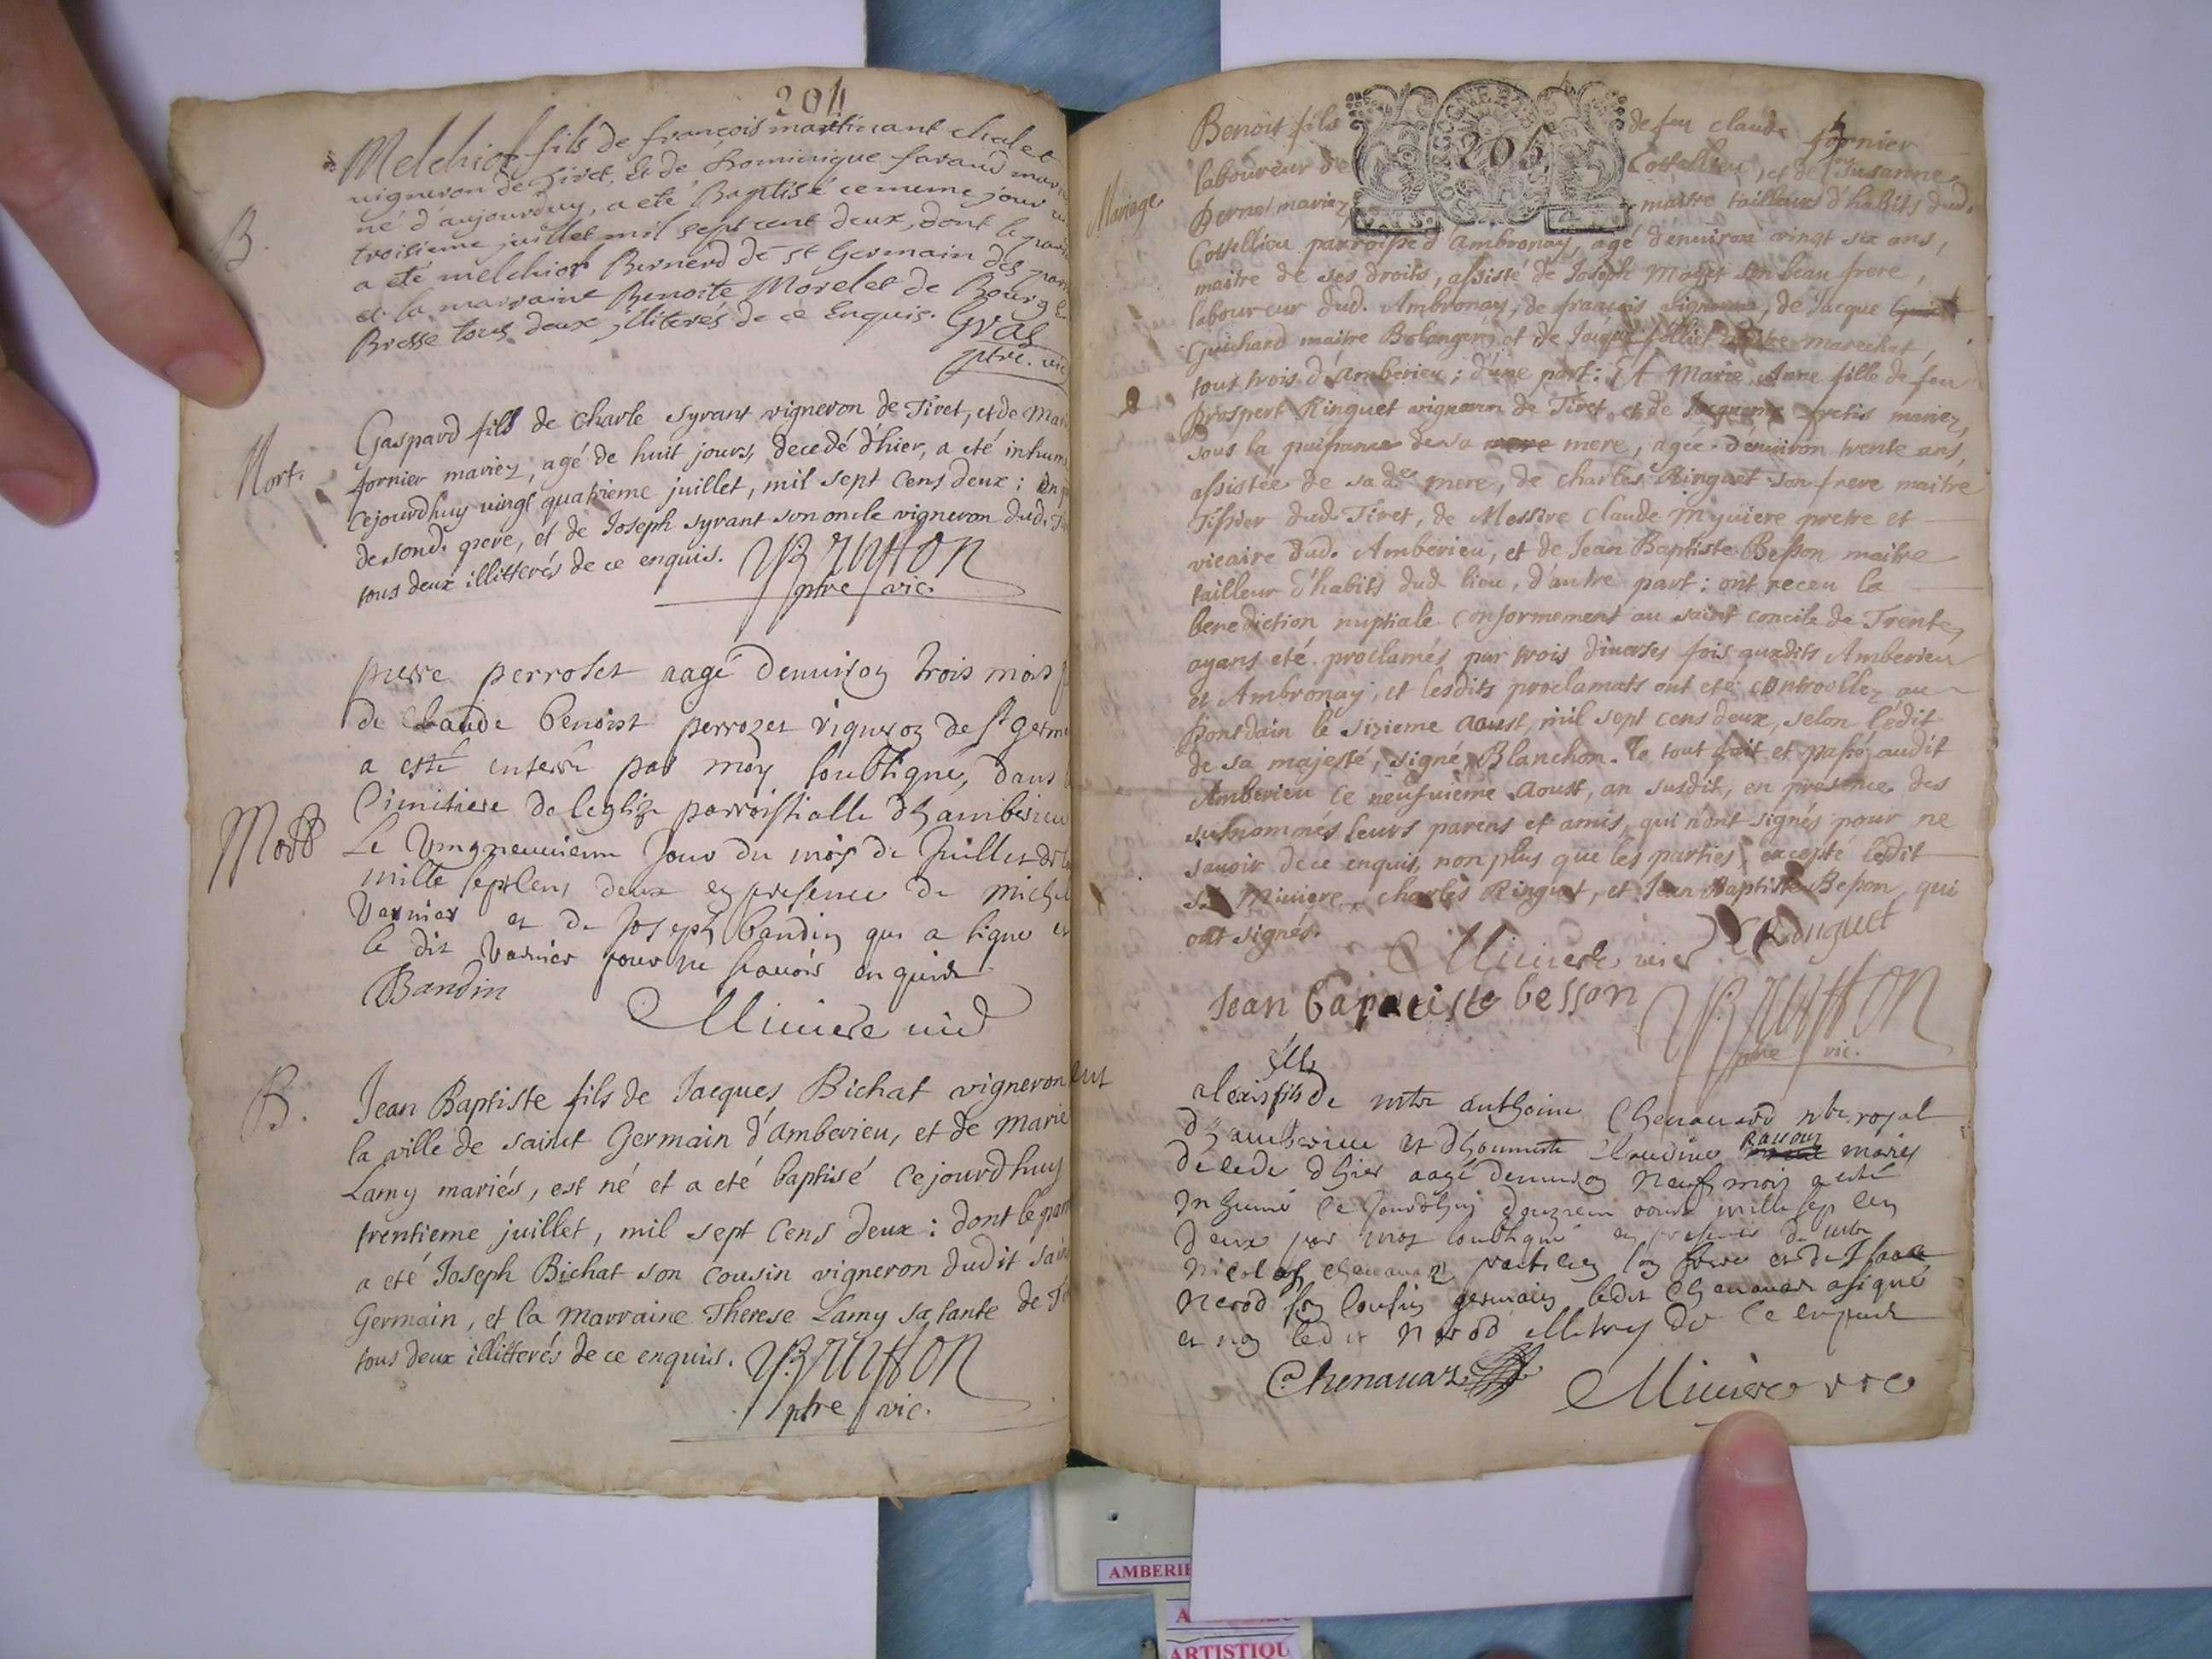 204
Melchior fils de francois martinant chalet
vigneron de Tiret, et de Dominique faraud mar
né d'aujourduy, a eté Baptisé ce meme jour
troisieme juillet mil sept cent deux, dont le par
a eté melchior Bernerd de st Germain des
et la marraine Benoite Morelet de Bourg En
Bresse tous deux illiterés de ce Enquis. Gras
ptre. vic
B.
Gaspard fils de Charle Syrant vigneron de Tiret, et de Mar
fornier mariez, agé de huit jours, decedé d'hier, a eté inhumé
Cejourdhuy vingt quatrieme juillet, mil sept cens deux; en p
de sond. pere, et de Joseph Syrant son oncle vigneron dud. Ti
tous deux illitterés de ce enquis. Bruysson
ptre vic.
Mort.
pierre perroset aagé denuiron trois mois f
de Claude benoist perrozet vigneron de st germ
a esté enterré par moy soubsigné, dans
Cimitiere de leglize parroissialle dhamberieu
Le vingneuuieme Jour du mois de Juillet
mille sept cens deux en presence de michel
varnier et de Joseph bandin qui a signe et
le dit varnier pour ne scauoir enquis
Bandin
Miuiere vic
Mort
B.
Jean Baptiste fils de Jacques Bichat vigneron en
la ville de saint Germain d'Amberieu, et de Marie
Lamy mariés, est né et a eté baptisé Cejourdhuy
trentieme juillet, mil sept cens deux: dont le parr
a eté Joseph Bichat son cousin vigneron dudit sain
Germain, et la Marraine Therese Lamy sa tante de Ti
tous deux illitterés de ce enquis. Bruysson
ptre vic.
205
Mariage
Benoit fils de feu claude fornier
laboureur de Cottelliou, et de Susanne
Bernet mariez maitre tailleur d'habits dud.
Cottelliou parroisse d'Ambronay, agé d'enuiron vingt six ans,
maitre de ses droits, assisté de Joseph Moget son beau frere,
laboureur dud. Ambronay, de françois, de Jacque
Guichard maitre Bolanger, et de Jacque folliet maitre marechal,
tous trois d'Amberieu; d'une part: Et Marie Anne fille de feu
Prospert Ringuet vigneron de Tiret, et de Jacqueme mariez,
sous la puissance de sa mere, agée d'enuiron trente ans,
assistée de sa de mere, de Charles Ringuet son frere maitre
Tissier dud. Tiret, de Messire Claude Myuiere pretre et
vicaire dud. Amberieu, et de Jean Baptiste Besson maitre
tailleur d'habits dud. lieu, d'autre part: ont receu la
benediction nuptiale conformement au saint concile de Trente,
ayans eté proclamés par trois diuerses fois auxdits Amberieu
et Ambronay; et lesdits proclamats ont eté controollez au
Pontdain le sixieme Aoust, mil sept cens deux, selon l'édit
de sa majesté, signé Blanchon. Le tout fait et passé audit
Amberieu ce neufuieme Aoust, an susdit, en presence des
susnommés leurs parens et amis, qui n'ont signés pour ne
sauoir de ce enquis, non plus que les parties, excepté ledit
sr Miuiere, Charles Ringuet, et Jean Baptiste Besson, qui
ont signés.
Miuiere vic C Ringuet
Jean bapatiste besson Bruysson
ptre vic.
alexis fils de mtre anthoine Chenauard nre royal
dhamberieu et dhonneste Claudine mariés
decede dhier aagé denuiron neuf mois a esté
Inhumé ce Jourdhuy douzieme aoust mille sep cens
deux par moy soubsigné en presence de mtre
nicolas chenauard praticien son frere et de Isaac
nerod son Cousin germain ledit Chenauard a signé
et non ledit nerod illitteré de ce enquis
Chenauard Miuiere vic
AMBERIE
ARTISTIQU